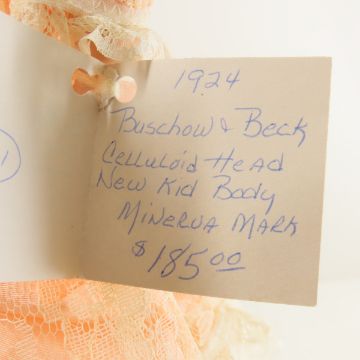 1924
Buschow & Beck
Celluloid Head
New Kid Body
Minerva Mark
$185.00